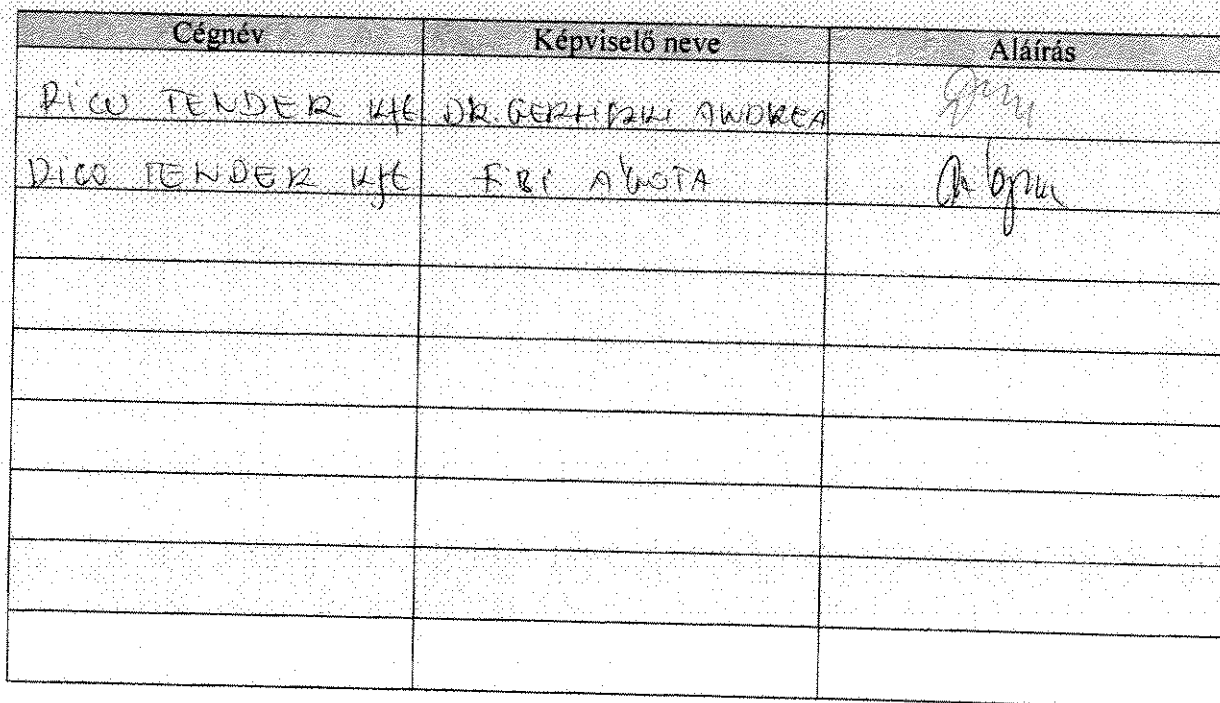 Cégnév Képviselő neve Aláírás
DICO TENDER Kft DR. ANDREA
DICO TENDER Kft ÁGOTA